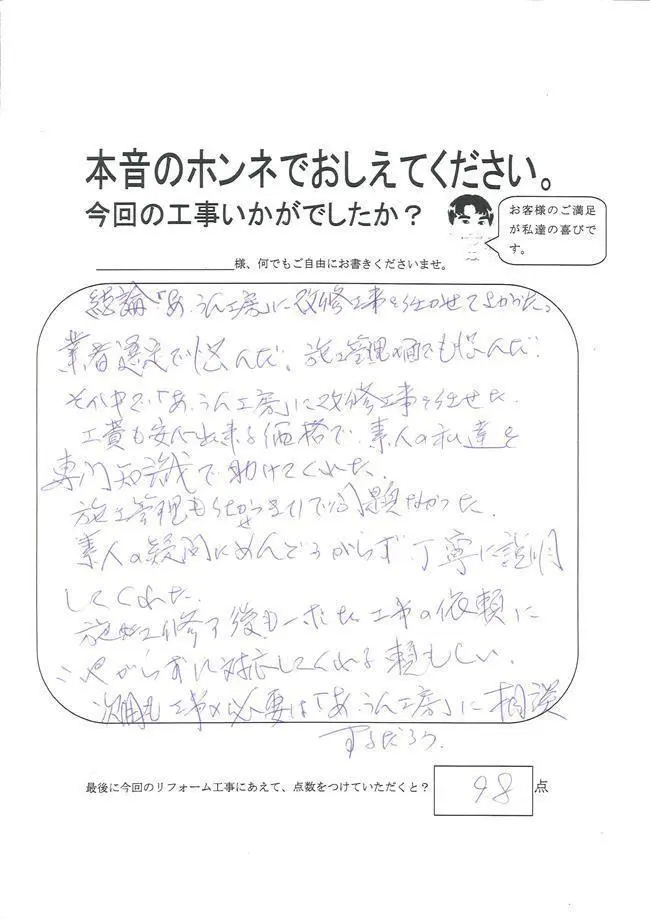 本音のホンネでおしえてください。
今回の工事いかがでしたか？
お客様のご満足
が私達の喜びで
す。
様、何でもご自由にお書きくださいませ。
結論「あ.うん工房」に改修工事を任かせてよかった。
業者選定で悩んだ。施工管理の面でも悩んだ。
その中で「あ.うん工房」に改修工事を任せた.
工費も安心出来る価格で.素人の私達を
専門知識で助けてくれた.
施工管理も任せっきりで問題なかった.
素人の疑問にめんどうがらず.丁寧に説明
してくれた.
施工修了後も工事の依頼に
いやがらずに対応してくれる頼もしい.
次回も工事が必要は「あ.うん工房」に相談
するだろう.
最後に今回のリフォーム工事にあえて、点数をつけていただくと？
98
点